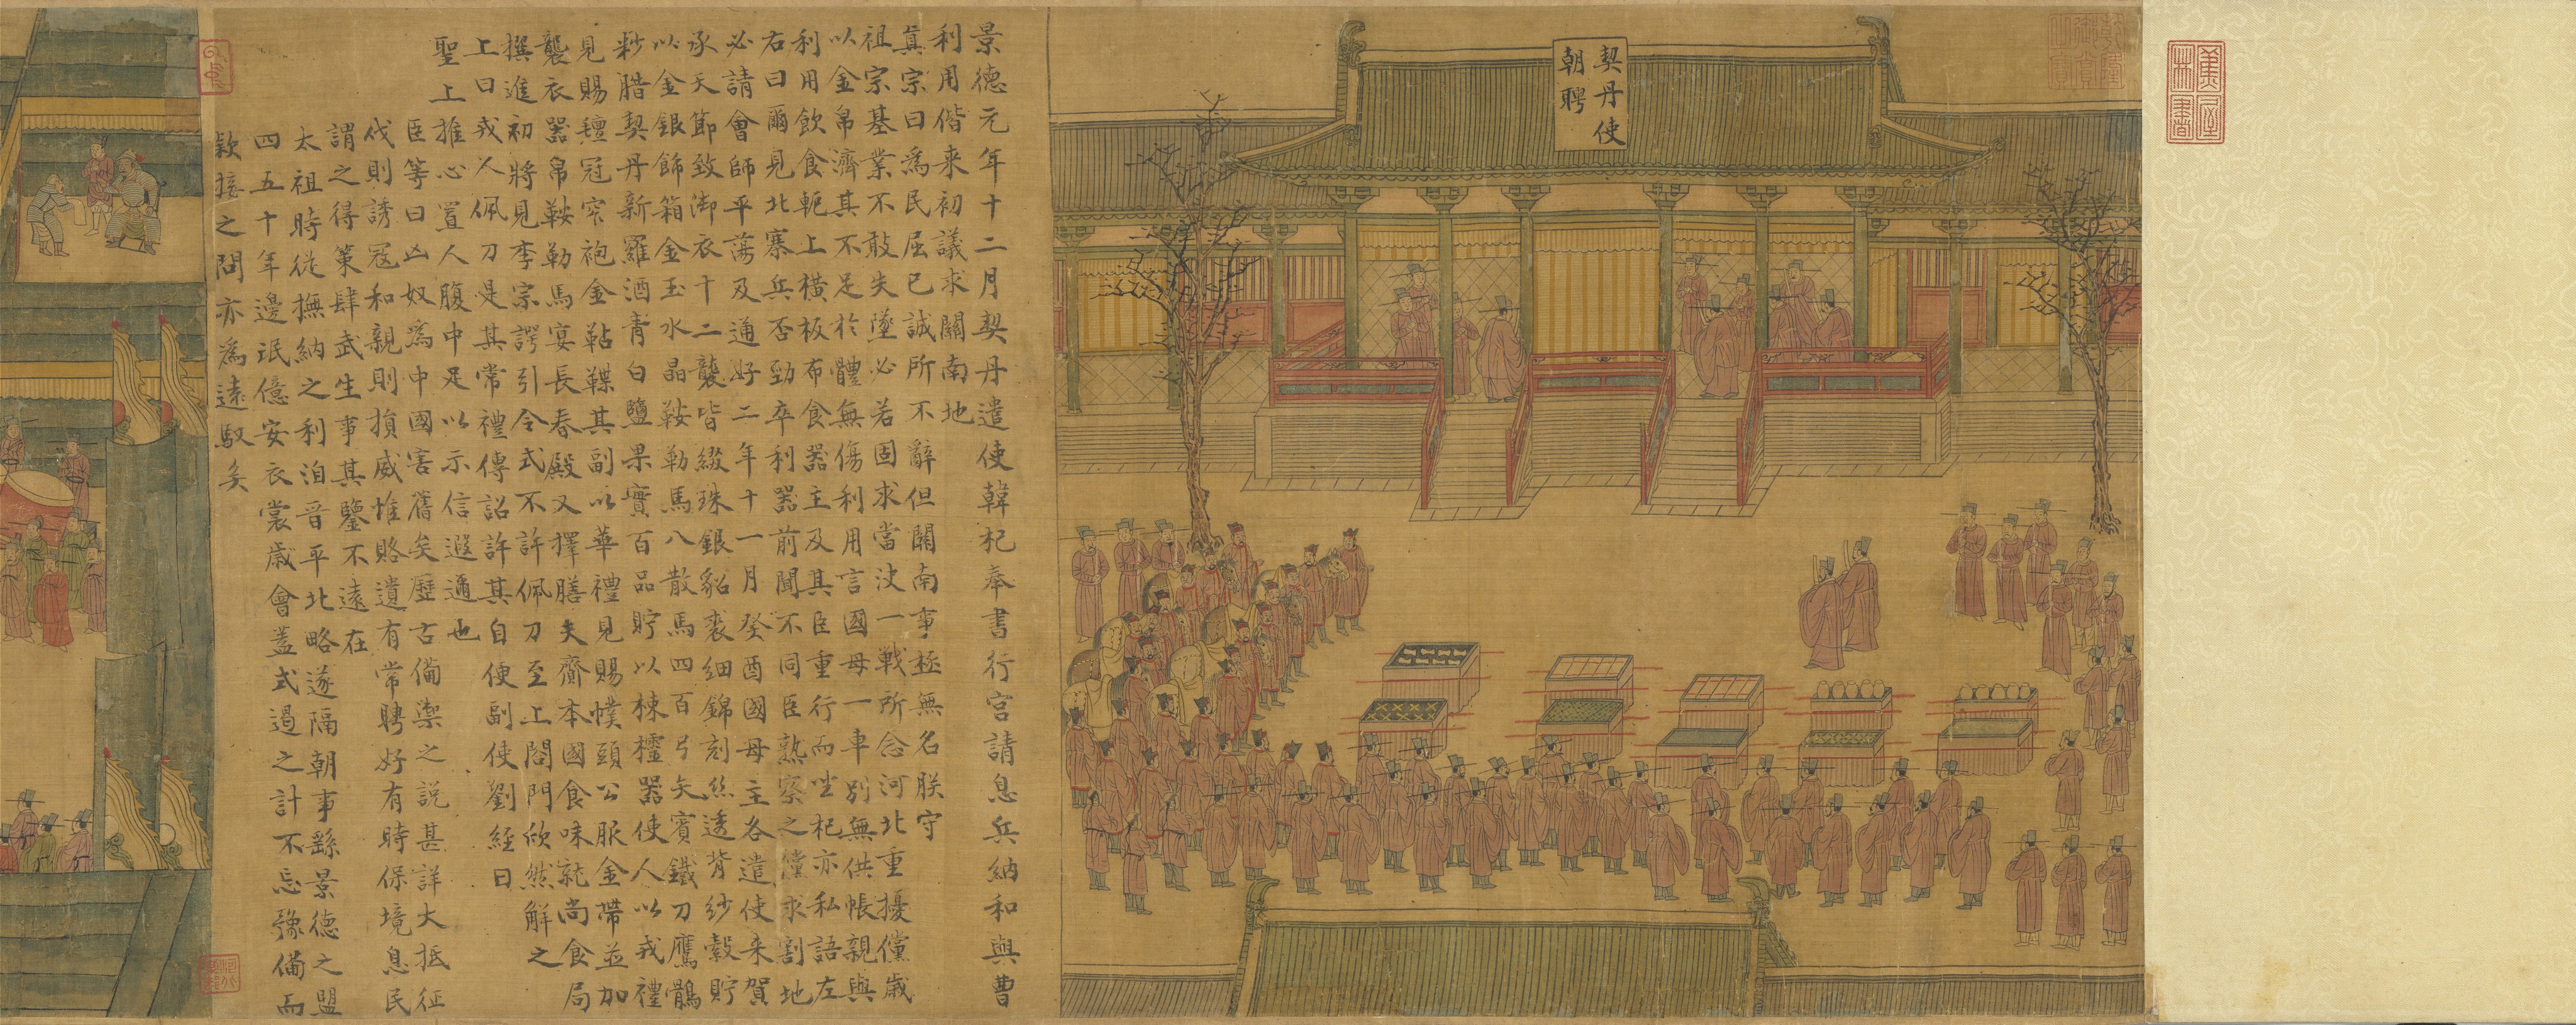 蕉林書屋
契丹使
朝聘
景德元年十二月契丹遣使韓杞奉書行宮請息兵納和與曹
利用偕来初議求關南地
真宗曰為民屈已誠所不辭但關南事極無名朕守
祖宗基業不敢失墜必若固求當決一戰所念河北重擾儻歲
以金帛濟其不足於體無傷利用言國母一車別無供帳親與
利用飲食軛上橫板布食器主及其臣重行而坐杞亦私語左
右曰爾見北寨兵否勁卒利器前聞不同臣熟察之儻求割地
必請會師平蕩及通好二年十一月癸酉國母主各遣使来賀
承天節致御衣十二襲皆綴珠銀貂裘細錦刻絲透背紗縠貯
以金銀飾箱金玉水晶鞍勒馬八散馬四百弓矢賓鐵刀鷹鶻
粆腊契丹新羅酒青白鹽果實百品貯以棟櫺器使人以戎禮
見賜氊冠窄袍金鞊鞢其副以華禮見賜幞頭公服金帶並加
襲衣器帛鞍勒馬宴長春殿又擇膳夫齎本國食味就尚食局
撰進初將見李宗諤引令式不許佩刀至上閤門欣然解之
上曰戎人佩刀是其常禮傳詔許其自便副使劉經曰
聖上推心置人腹中足以示信遐邇也
臣等曰凶奴為中國害舊矣歷古備禦之說甚詳大抵征
伐則誘寇和親則損威惟賂遺有常聘好有時保境息民
謂之得策肆武生事其鑒不遠在
太祖時從撫納之利洎晉平北略遂隔朝事繇景德之盟
四五十年邊氓億安衣裳歲會蓋式遏之計不忘豫備而
欵接之問亦為遠馭矣